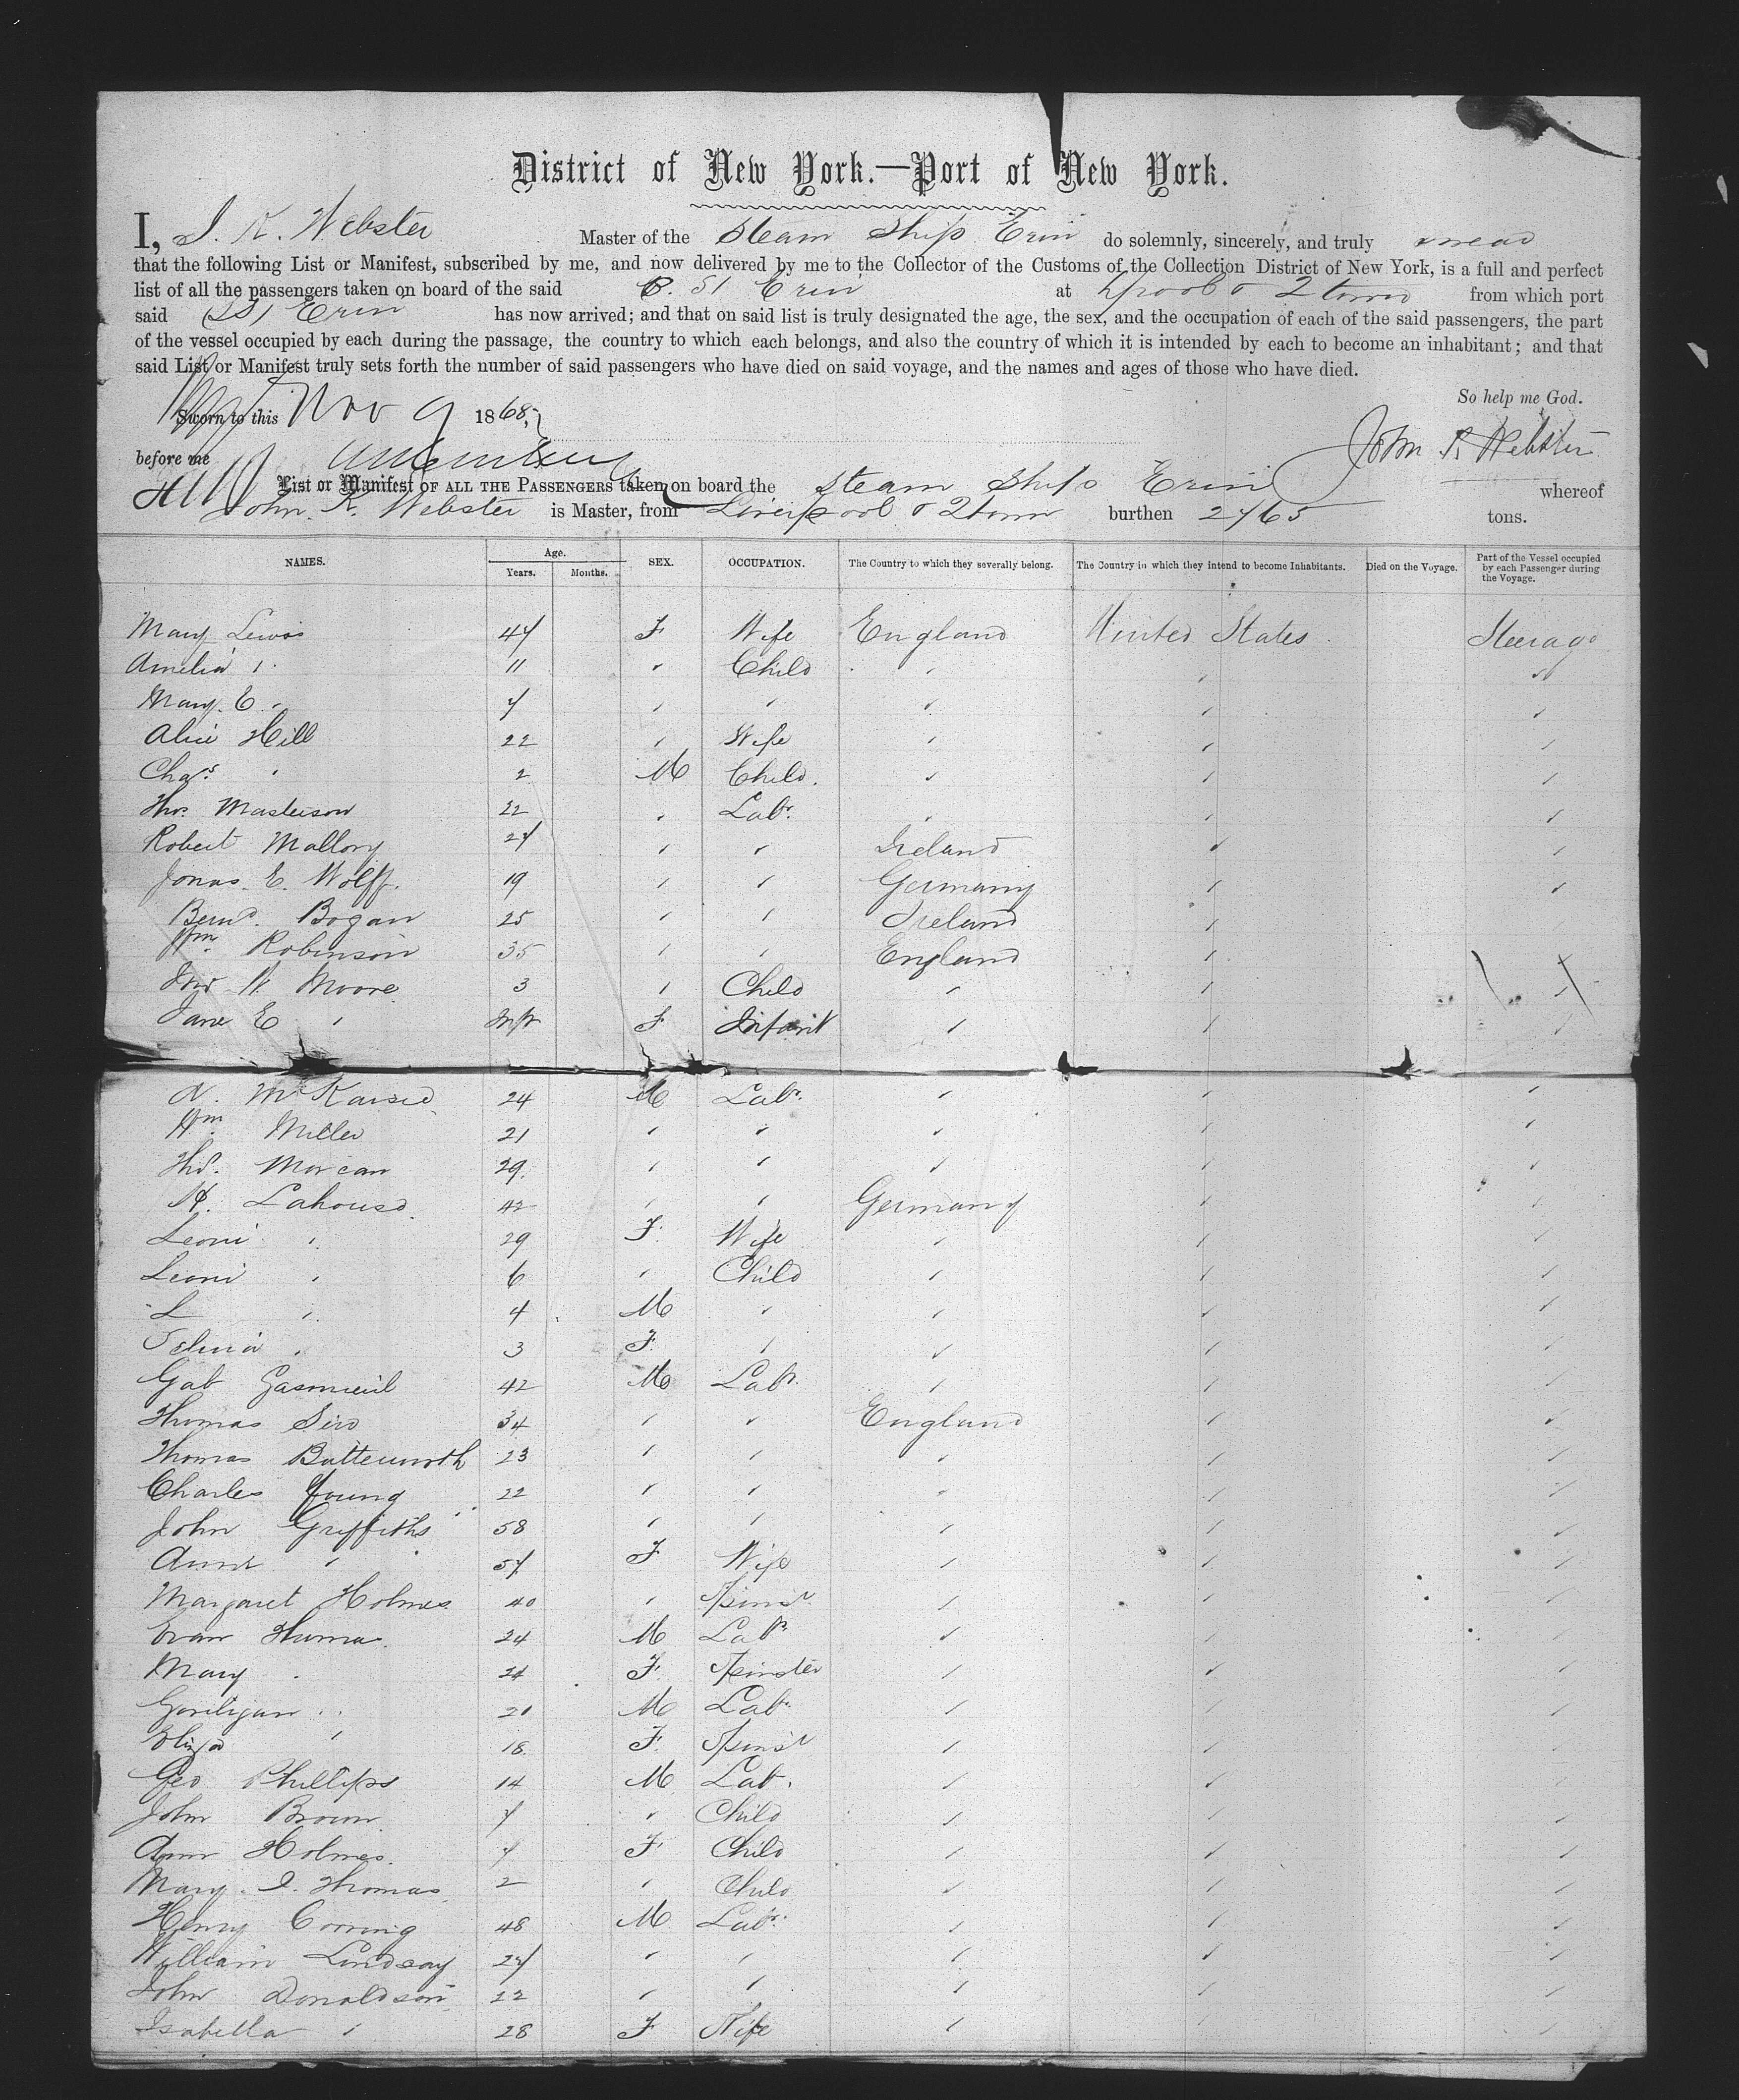 District of New York.—Port of New York.
I, J. K. Webster Master of the Steam Ship Erin do solemnly, sincerely, and truly swear
that the following List or Manifest, subscribed by me, and now delivered by me to the Collector of the Customs of the Collection District of New York, is a full and perfect
list of all the passengers taken on board of the said Erin at L'pool & 2town from which port
said SS Erin has now arrived; and that on said list is truly designated the age, the sex, and the occupation of each of the said passengers, the part
of the vessel occupied by each during the passage, the country to which each belongs, and also the country of which it is intended by each to become an inhabitant; and that
said List or Manifest truly sets forth the number of said passengers who have died on said voyage, and the names and ages of those who have died.
So help me God.
Sworn to this Nov 9 1868,
John K. Webster
before me
List or Manifest OF ALL THE PASSENGERS taken on board the Steam Ship Erin whereof
John. K. Webster is Master, from Liverpool & 2town burthen 2765 tons.
NAMES. Age. Years. Months. SEX. OCCUPATION. The Country to which they severally belong. The Country in which they intend to become Inhabitants. Died on the Voyage. Part of the Vessel occupied by each Passenger during the Voyage.
Mary Lewis 47 F Wife England United States Steerage
Amelia " 11 " Child " " "
Mary. E. " 7 " " " " "
Alice Hill 22 " Wife " " "
Chas. " 2 M Child. " " "
Thos. Masterson 22 " Labr. " " "
Robert Mallory 27 " " Ireland " "
Jonas. E. Wolff. 19 " " Germany " "
Bernd. Bogan 25 " " Ireland " "
Wm. Robinson 35 " " England " "
Jno W Moore 3 " Child " " "
Jane E " Inft F Infant " " "
24 M Labr. " " "
Wm. Miller 21 " " " " "
Thos. Morean 29. " " " " "
42 " " Germany " "
Leoni " 29 F. Wife " " "
Leoni " 6 " Child " " "
L " 4 M " " " "
" 3 F. " " " "
Gab 42 M Labr. " " "
Thomas 34 " " England " "
Thomas Butterworth 23 " " " " "
Charles Young 22 " " " " "
John Griffiths 58 " " " " "
Ann " 57 F Wife " " "
Margaret Holmes 40 " Spinst " " "
Evan Thomas 24 M Labr " " "
Mary " 24 F. Spinster " " "
" 20 M Labr. " " "
Eliza " 18. F. Spinst " " "
Geo Phillips 14 M Lab. " " "
John Brown 7 " Child " " "
Ann Holmes. 7 F Child " " "
Mary. J. Thomas 2 " Child " " "
Henry Corning 48 M Labr. " " "
William Lindsay 27 " " " " "
John Donaldson 22 " " " " "
Isabella " 28 F Wife " " "